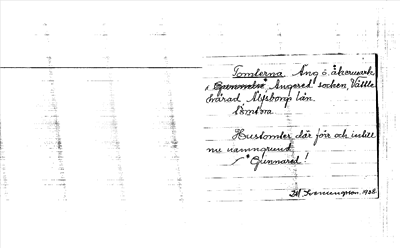 Tomterna Äng o. åkermark
i Gunnilse, Angered socken, Vättle
härad Älfsborgs län.
Tomtera
Hustomter där förr och intill
nu namngrund
* Gunnared!
1938